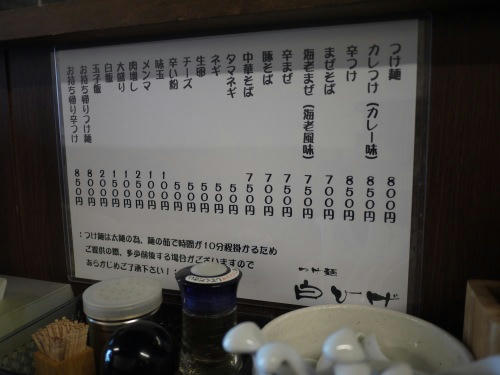 つけ麺 800円
カレつけ(カレー味) 850円
辛つけ 850円
まぜそば 700円
海老まぜ(海老風味) 750円
辛まぜ 750円
豚そば 700円
中華そば 750円
タマネギ 50円
ネギ 50円
生卵 50円
チーズ 50円
辛い粉 50円
味玉 100円
メンマ 100円
肉増し 250円
大盛り 100円
白飯 150円
玉子飯 200円
お持ち帰りつけ麺 800円
お持ち帰り辛つけ 850円
:つけ麺は太麺の為、麺の茹で時間が10分程掛かるため
ご提供の際、多少前後する場合がございますので
あらかじめご了承下さい!:
つけ麺